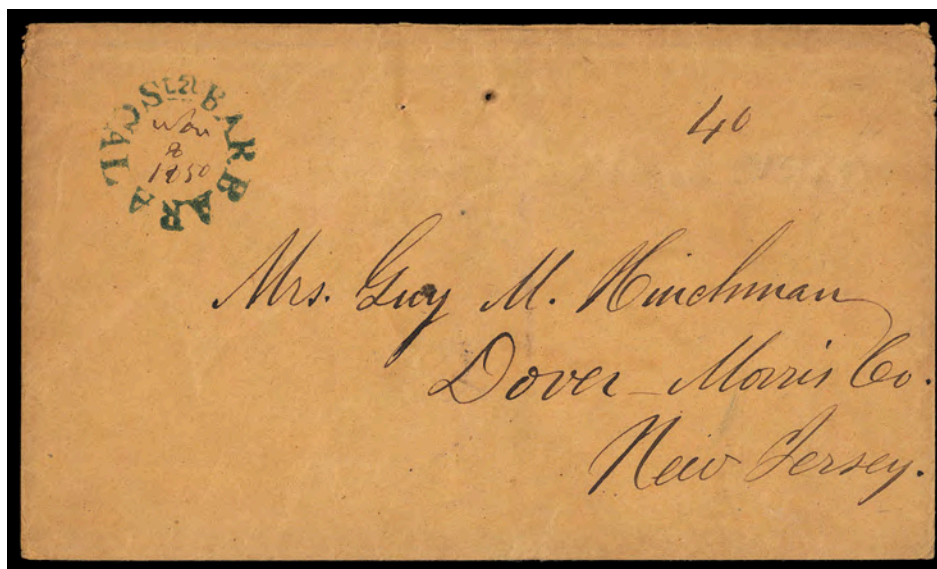 Sta BARBARA CAL
Nov
8
1850
40
Mrs. Guy M. Hinchman
Dover - Morris Co.
New Jersey.